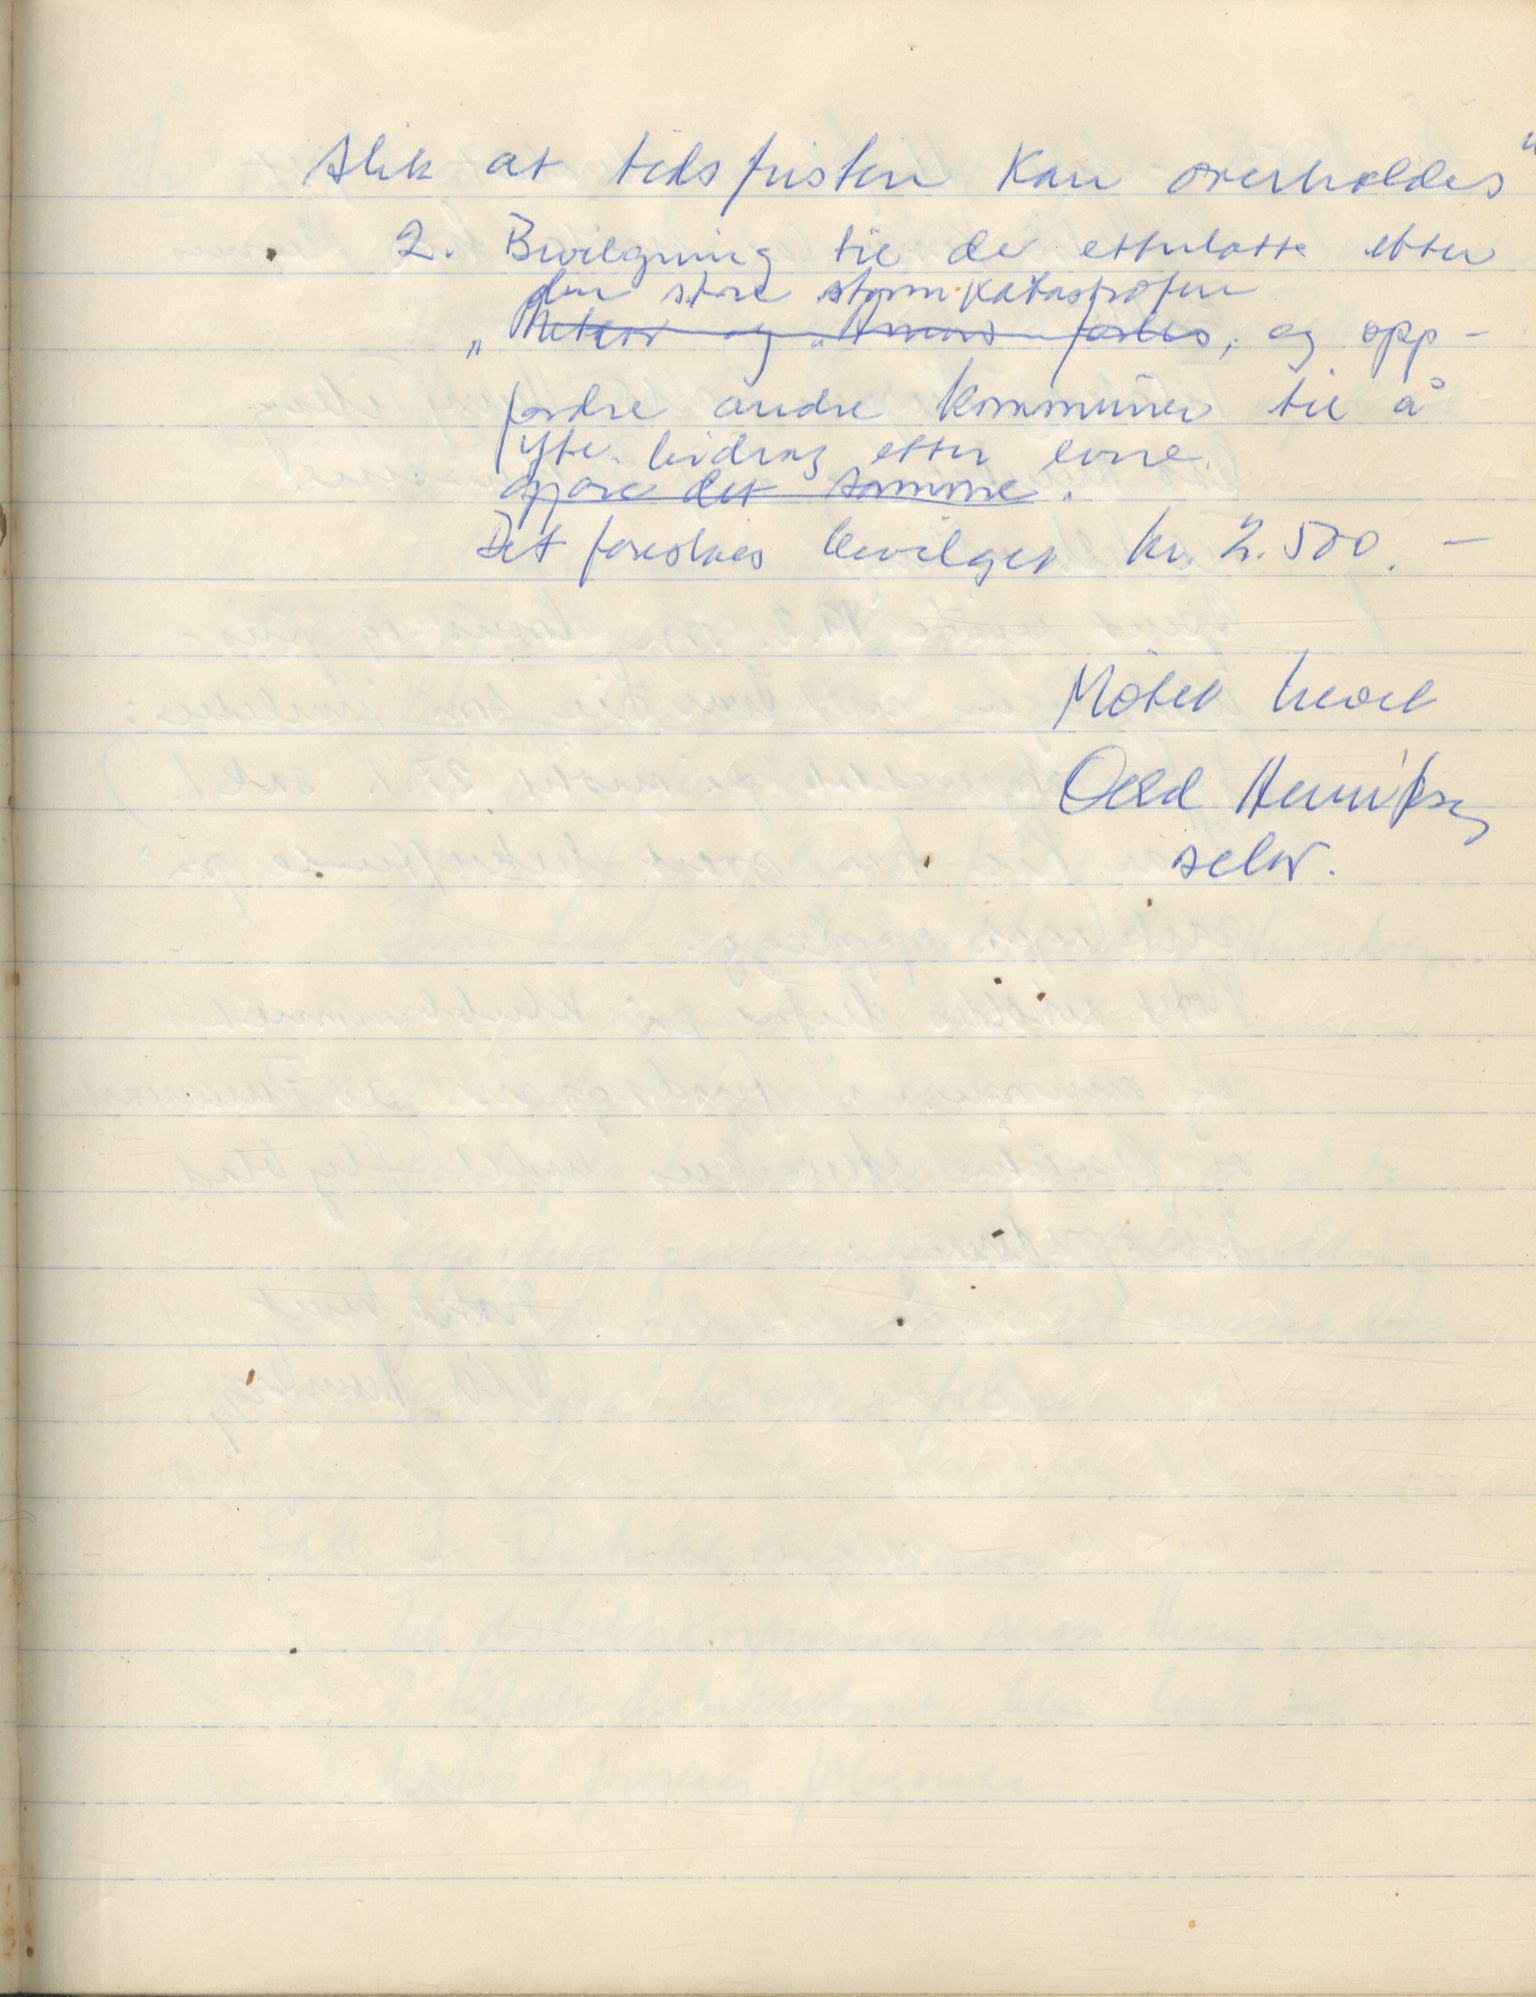 slik at tidsfristen kan overholdes"
2. Bevilgning til de etterlatte etter
den store stormkatastrofen
og forlis, og opp-
fordre andre kommuner til å
yte bidrag etter evne.
gjøre det samme.
Det foreslåes bevilget kr. 2.500.-
Møtet hevet
Odd Henriksen
sekr.